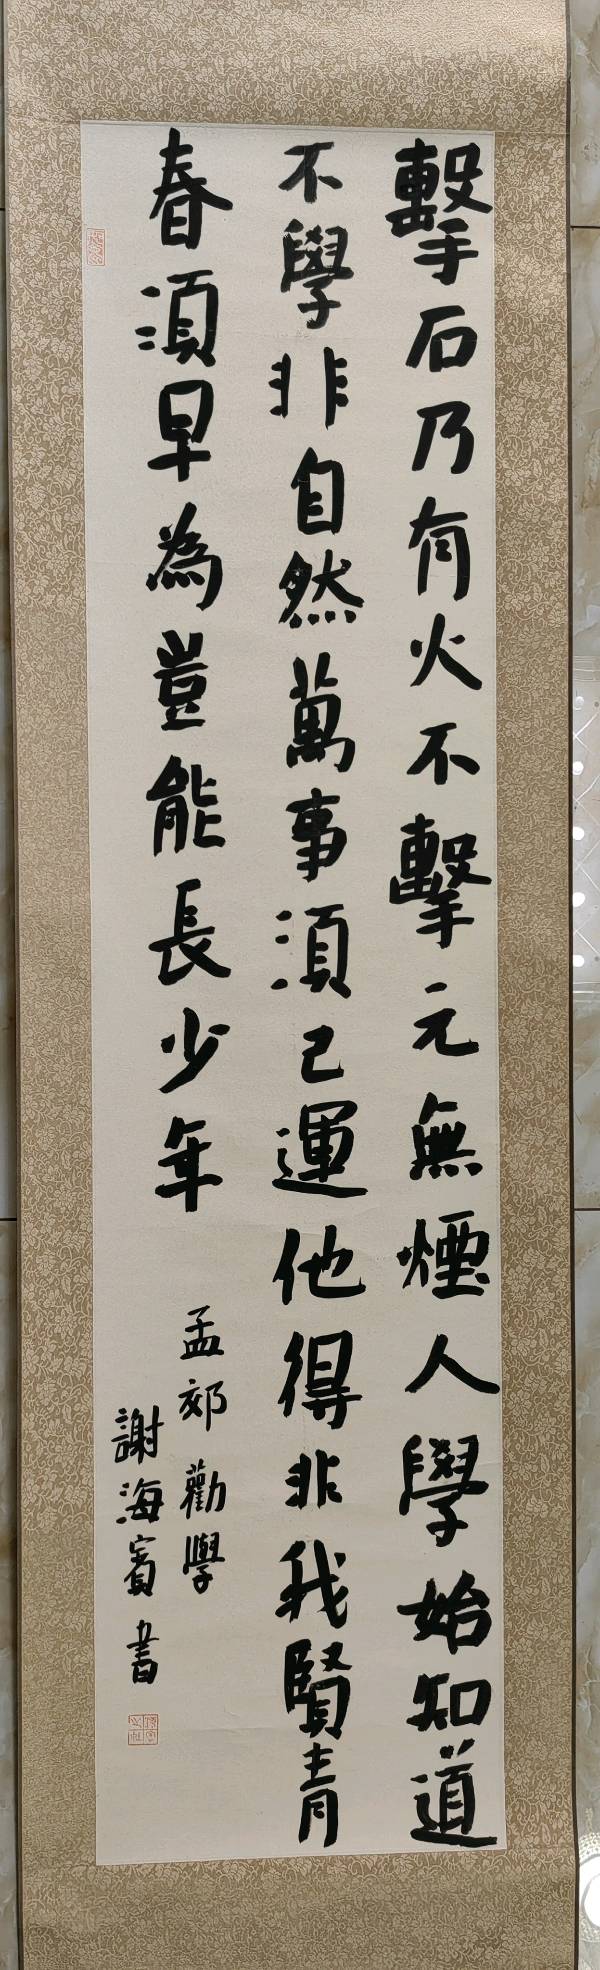 擊石乃有火不擊元無煙人學始知道
不學非自然萬事須己運他得非我賢青
春須早為豈能長少年
孟郊勸學
謝海賓書